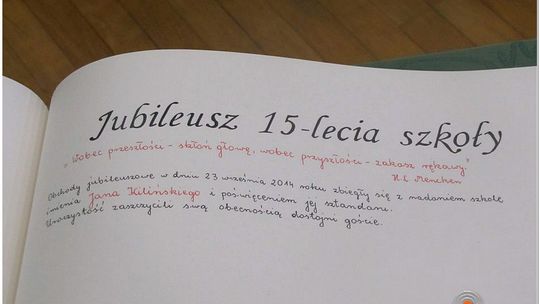 Jubileusz 15-lecia szkoły
"Wobec przeszłości - skłoń głowę, wobec przyszłości - zakasz rękawy"
H.L Mencken
Obchody jubileuszowe w dniu 23 września 2014 roku zbiegły się z nadaniem szkole
imienia Jana Kilińskiego i poświęceniem jej sztandaru.
Uroczystość zaszczycili swą obecnością dostojni goście.